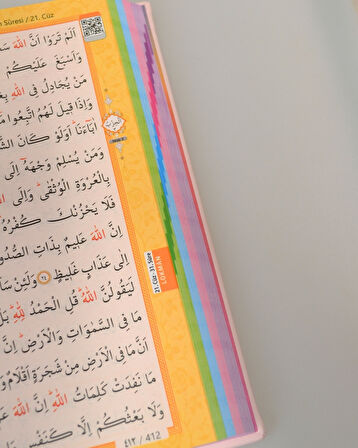 Sûresi / 21. Cüz
اَلَمْ تَرَوْا اَنَّ اللّٰهَ
وَاَسْبَغَ عَلَيْكُمْ
مَنْ يُجَادِلُ فِى اللّٰهِ
وَاِذَا قِيلَ لَهُمُ اتَّبِعُوا
اٰبَٓاءَنَاۜ اَوَلَوْ كَانَ
وَمَنْ يُسْلِمْ وَجْهَهُٓ اِلَى
بِالْعُرْوَةِ الْوُثْقٰىۜ وَاِلَى
فَلَا يَحْزُنْكَ كُفْرُهُ
اِنَّ اللّٰهَ عَلِيمٌ بِذَاتِ الصُّدُو
اِلٰى عَذَابٍ غَلِيظٍ ﴿٢٤﴾ وَلَئِنْ
لَيَقُولُنَّ اللّٰهُۜ قُلِ الْحَمْدُ لِلّٰهِۜ بَلْ
مَا فِى السَّمٰوَاتِ وَالْاَرْضِۜ اِنَّ
اَنَّ مَا فِى الْاَرْضِ مِنْ شَجَرَةٍ اَقْلَامٌ
مَا نَفِدَتْ كَلِمَاتُ اللّٰهِۜ اِنَّ اللّٰهَ
وَلَا بَعْثُكُمْ اِلَّا كَنَفْسٍ
٤١٢ / 412
21. Cüz 31. Sûre
LOKMÂN